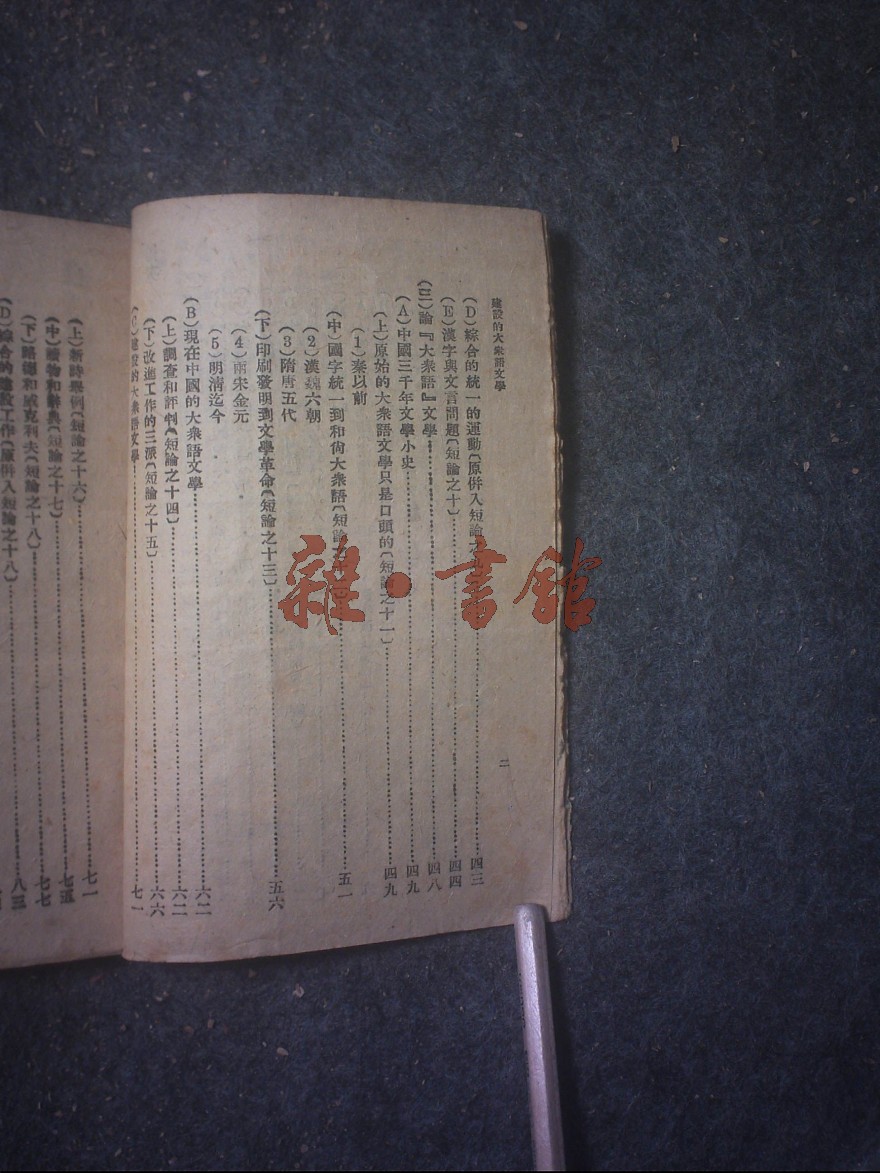 建設的大衆語文學
二
(D)綜合的統一的運動〔原併入短論之……四三
(E)漢字與文言問題〔短論之十〕……四四
(三)論『大衆語』文學……四八
(A)中國三千年文學小史……四九
(上)原始的大衆語文學只是口頭的〔短論之十一〕……四九
(1)秦以前
(中)國字統一到和尚大衆語〔短論之……五一
(2)漢魏六朝
(3)隋唐五代
(下)印刷發明到文學革命〔短論之十三〕……五六
(4)兩宋金元
(5)明清迄今
(B)現在中國的大衆語文學……六二
(上)調查和評判〔短論之十四〕……六二
(下)改進工作的三派〔短論之十五〕……六六
(C)建設的大衆語文學……七一
(上)新時舉例〔短論之十六〕……七一
(中)讀物和辭典〔短論之十七〕……七五
(下)路德和威克利夫〔短論之十八〕……七七
(D)綜合的建設工作〔原併入短論之十八〕……八三
雜·書館